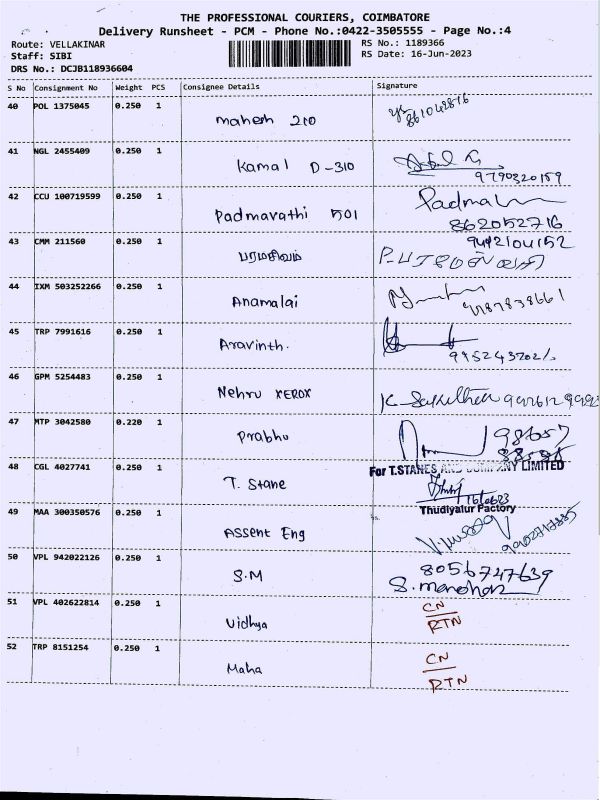 THE PROFESSIONAL COURIERS, COIMBATORE
Delivery Runsheet - PCM - Phone No.:0422-3505555 - Page No.:4
Route: VELLAKINAR
RS No.: 1189366
Staff: SIBI
RS Date: 16-Jun-2023
DRS No.: DCJB118936604
S No Consignment No Weight PCS Consignee Details Signature
40 POL 1375045 0.250 1
mahesh 210
41 NGL 2455409 0.250 1
Kamal D-310
9790320159
42 CCU 100719599 0.250 1
Padmavathi 501
Padma
862052716
43 CMM 211560 0.250 1
9442104152
பரமசிவம்
44 IXM 503252266 0.250 1
Anamalai
45 TRP 7991616 0.250 1
Aravinth.
46 GPM 5254483 0.250 1
Nehru XEROX
47 MTP 3042580 0.220 1
Prabhu
48 CGL 4027741 0.250 1
For T.STANES AND COMPANY LIMITED
T. Stane
16/06/23
Thudiyalur Factory
49 MAA 300350576 0.250 1
Assent Eng
50 VPL 942022126 0.250 1
8056747639
S.M
S. manohar
51 VPL 402622814 0.250 1
CN
Vidhya
RTN
52 TRP 8151254 0.250 1
CN
Maha
RTN